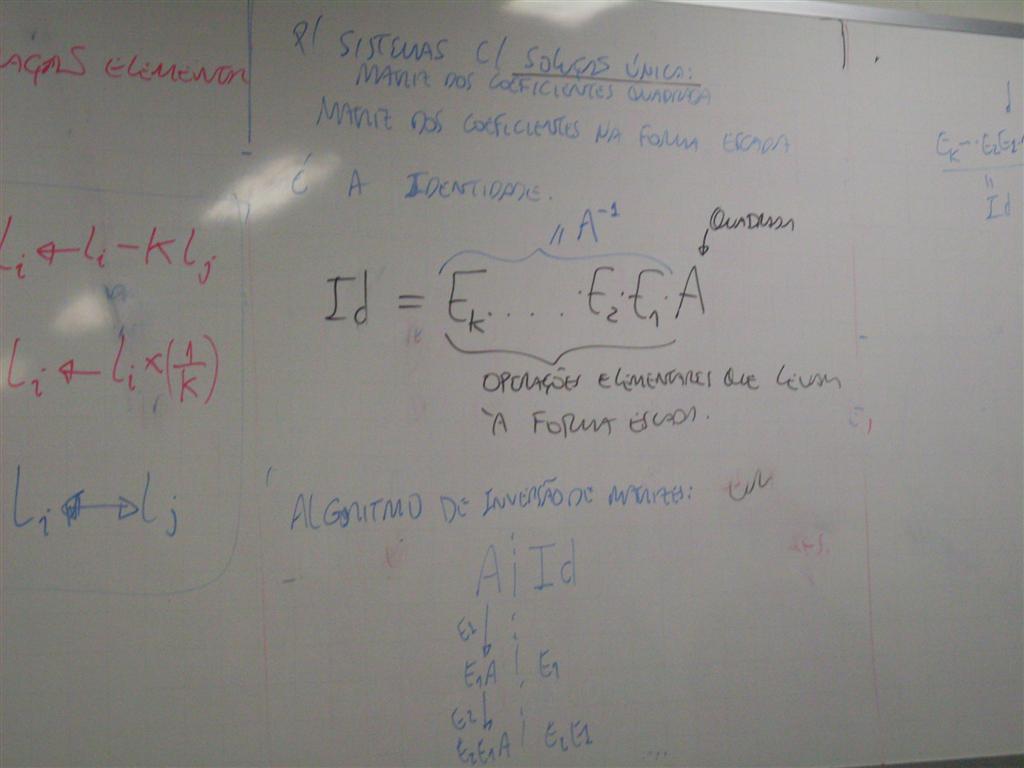 AÇÕES ELEMENTA
Li ← Li - K Lj
Li ← Li × (1/K)
Li ↔ Lj
P/ SISTEMAS C/ SOLUÇÃO ÚNICA:
MATRIZ DOS COEFICIENTES QUADRADA
MATRIZ DOS COEFICIENTES NA FORMA ESCADA
É A IDENTIDADE.
" A⁻¹
QUADRADA
Id = Ek . . . . . E2 . E1 . A
OPERAÇÕES ELEMENTARES QUE LEVAM
À FORMA ESCADA.
ALGORITMO DE INVERSÃO DE MATRIZES:
A ¦ Id
E1
E1A ¦ E1
E2
E2E1A ¦ E2E1
...
Ek ... E2E1
"
Id